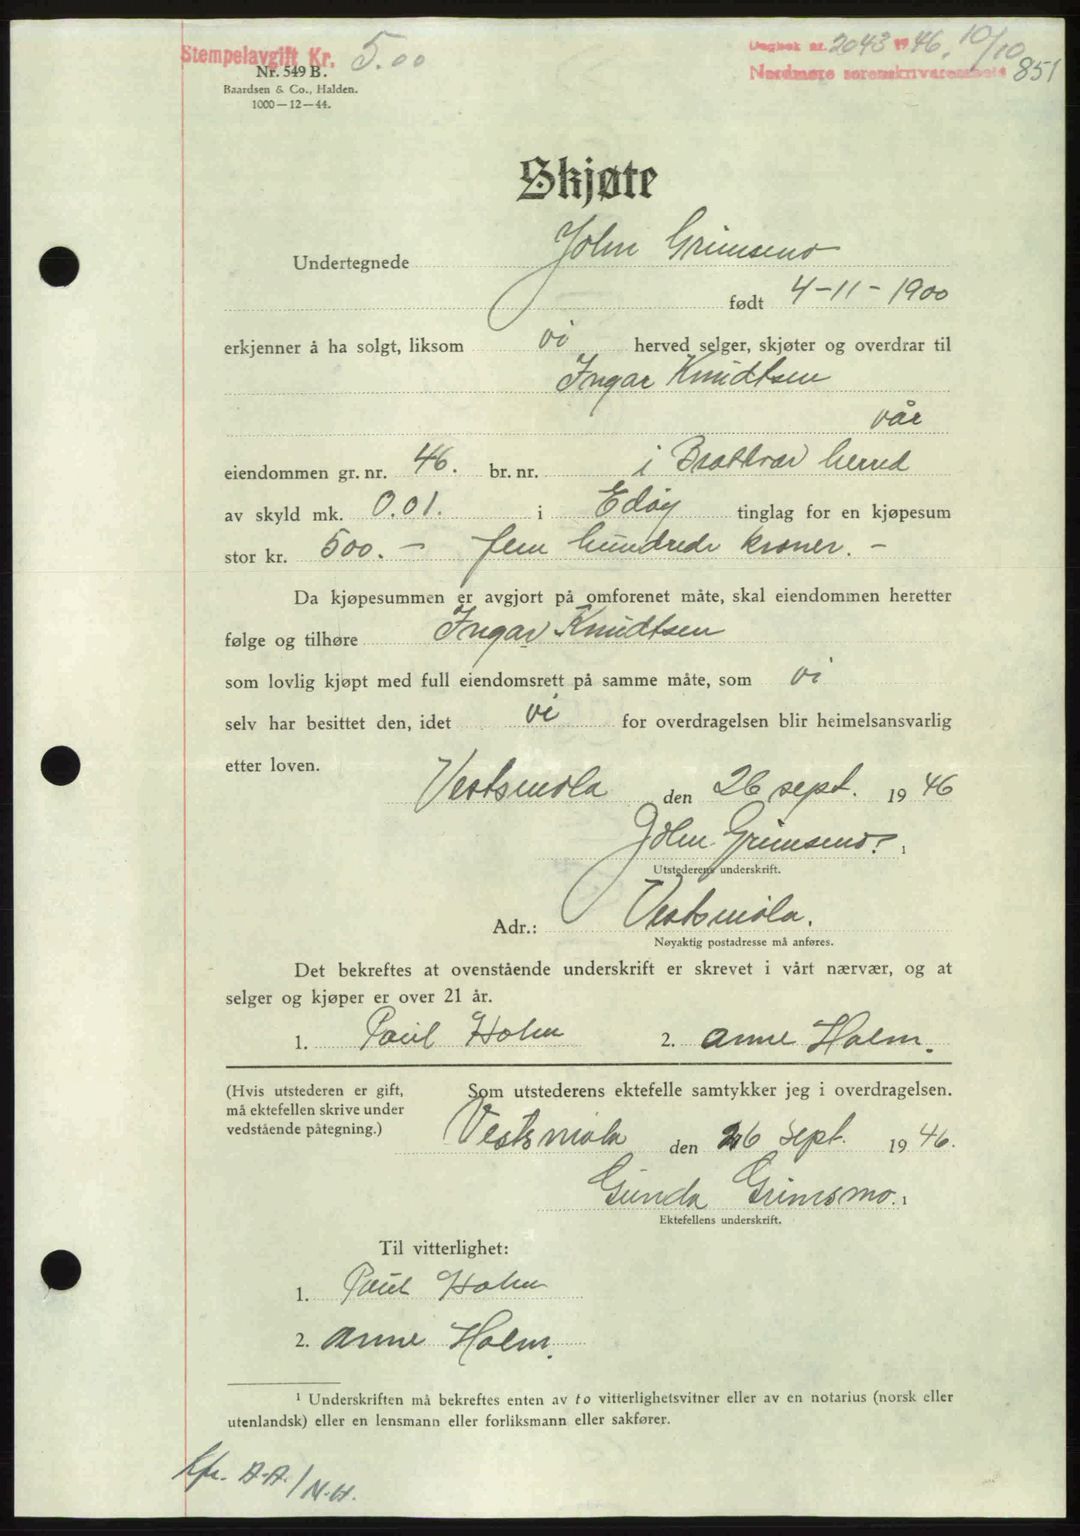 Stempelavgift Kr. 5.00
Dagbok nr. 2043 1946, 10/10
Nordmøre sorenskriverembete 851
Nr. 549 B.
Baardsen & Co., Halden.
1000—12—44.
Skjøte
Undertegnede John Grimsmo
født 4-11-1900
erkjenner å ha solgt, liksom vi herved selger, skjøter og overdrar til
Ingar Knudtsen
vår
eiendommen gr. nr. 46. br. nr. i Brattvær herred
av skyld mk. 0.01. i Edøy tinglag for en kjøpesum
stor kr. 500.- fem hundrede kroner.-
Da kjøpesummen er avgjort på omforenet måte, skal eiendommen heretter
følge og tilhøre Ingar Knudtsen
som lovlig kjøpt med full eiendomsrett på samme måte, som vi
selv har besittet den, idet vi for overdragelsen blir heimelsansvarlig
etter loven.
Vestsmøla den 26 sept. 1946
John Grimsmo. 1
Utstederens underskrift.
Adr.: Vestsmøla.
Nøyaktig postadresse må anføres.
Det bekreftes at ovenstående underskrift er skrevet i vårt nærvær, og at
selger og kjøper er over 21 år.
1. Paul Holm 2. Anne Holm.
(Hvis utstederen er gift,
må ektefellen skrive under
vedstående påtegning.)
Som utstederens ektefelle samtykker jeg i overdragelsen.
Vestsmøla den 26 sept. 1946.
Gunda Grimsmo. 1
Ektefellens underskrift.
Til vitterlighet:
1. Paul Holm
2. Anne Holm.
1 Underskriften må bekreftes enten av to vitterlighetsvitner eller av en notarius (norsk eller
utenlandsk) eller en lensmann eller forliksmann eller sakfører.
Kfr. A.A./N.H.